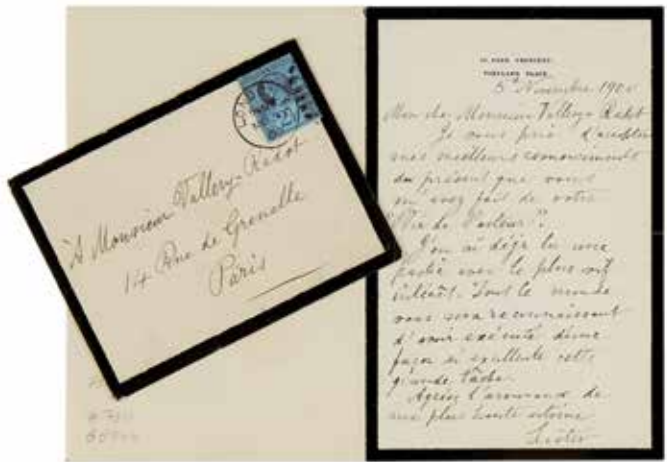 À Monsieur Vallery-Radot
14 Rue de Grenelle
Paris
12, PARK CRESCENT,
PORTLAND PLACE.
5 Novembre 1900
Mon cher Monsieur Vallery-Radot
Je vous prie d'accepter
mes meilleurs remerciments
du présent que vous
m'avez fait de votre
"Vie de Pasteur".
J'en ai déjà lu une
partie avec le plus vif
intérêt. Tout le monde
vous sera reconnaissant
d'avoir exécuté d'une
façon si excellente cette
grande tâche.
Agréez l'assurance de
ma plus haute estime
Lister